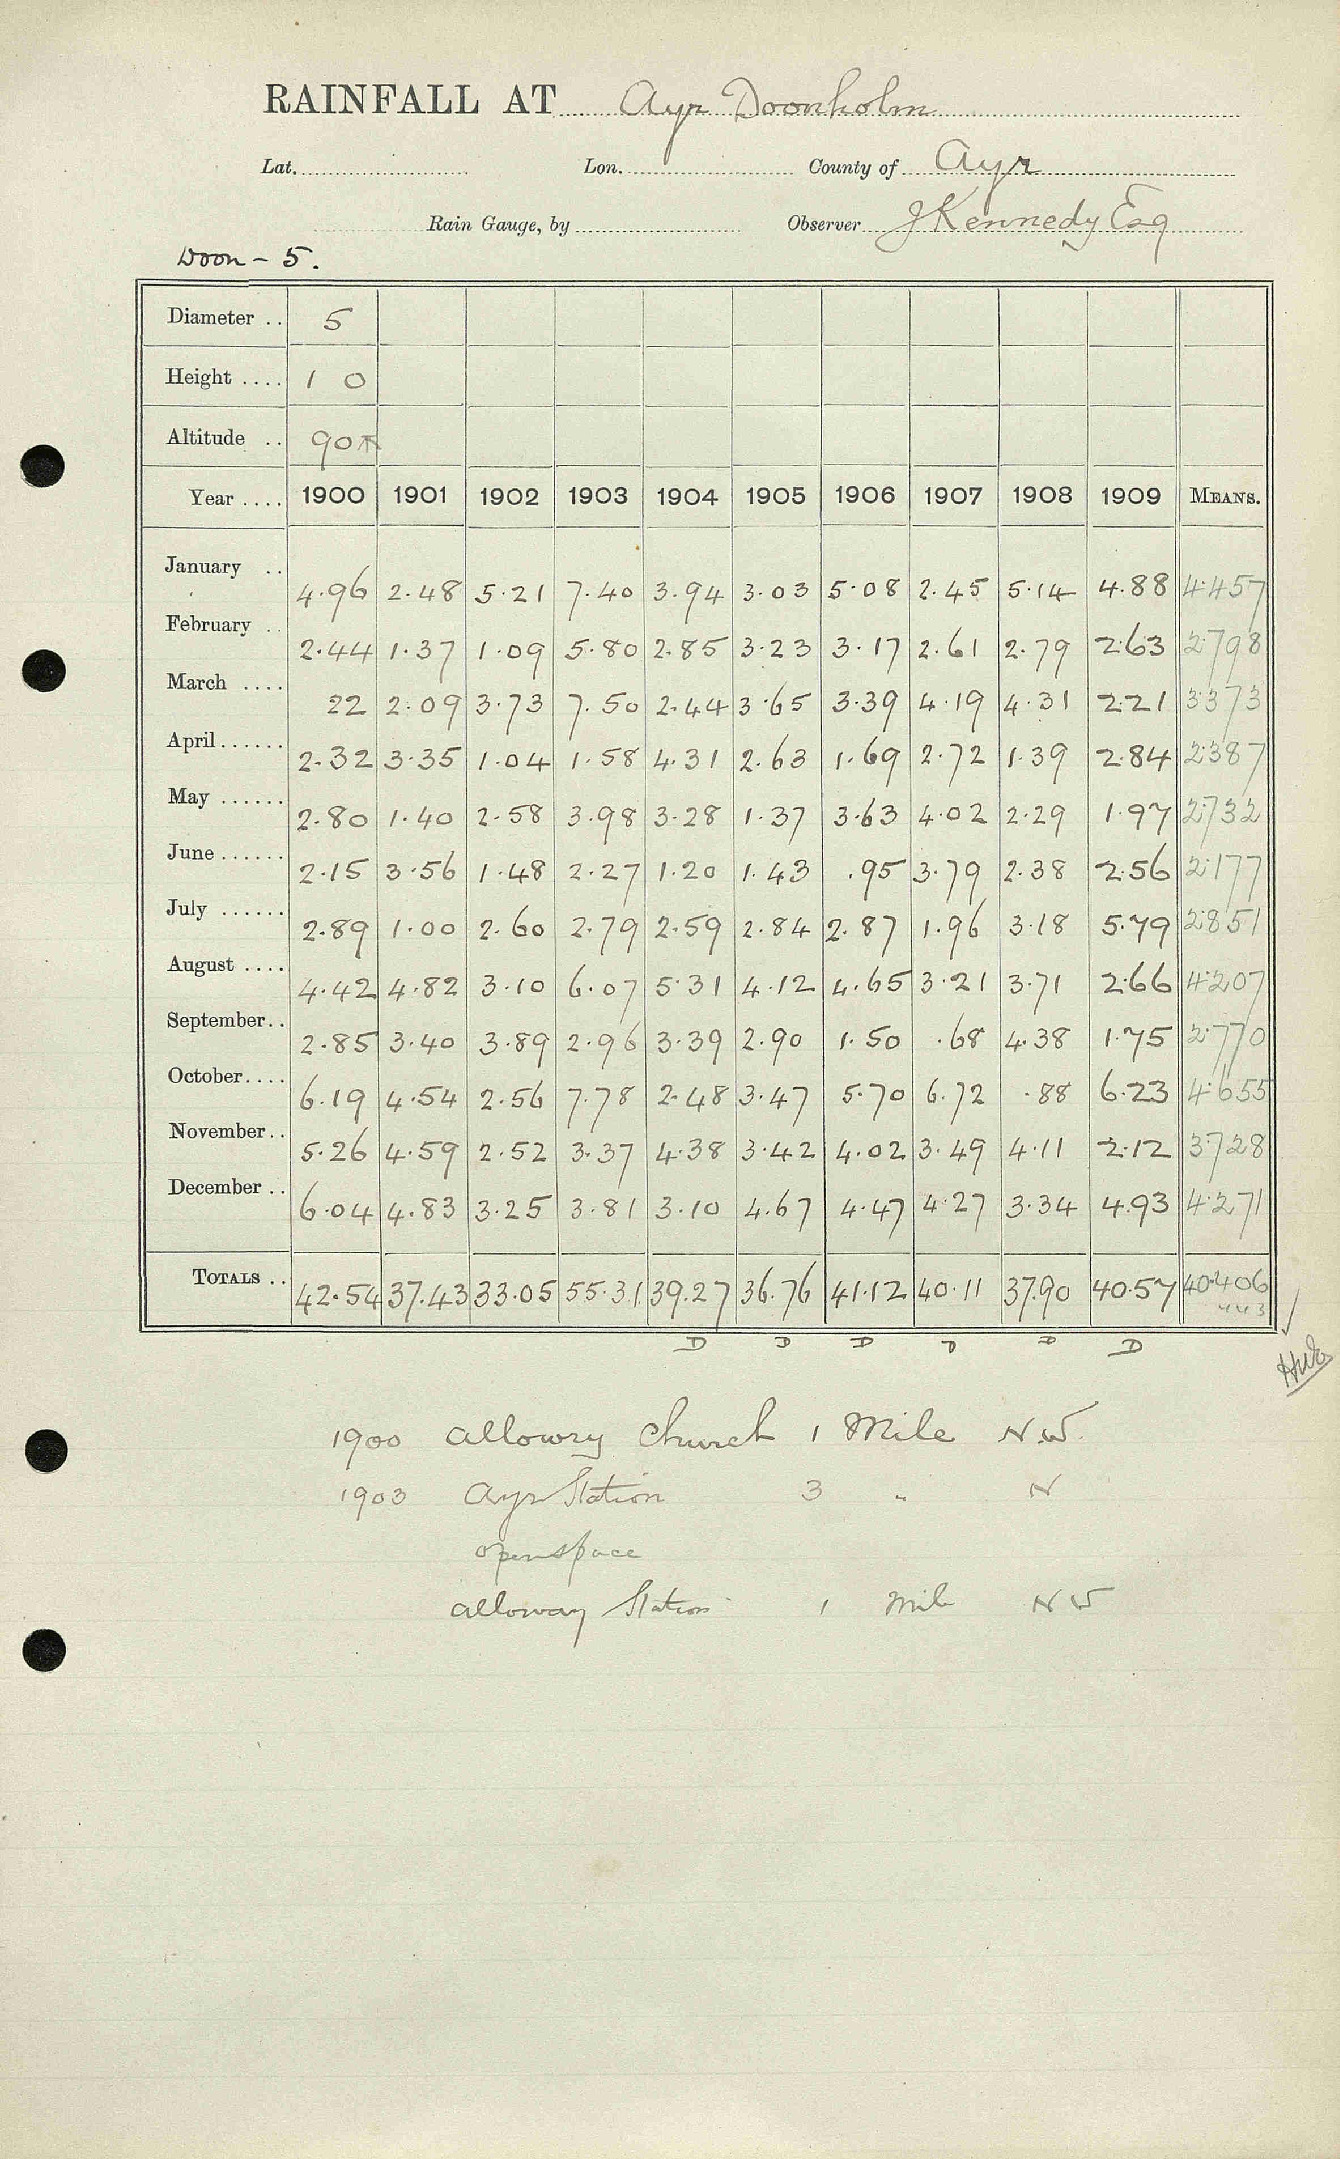 RAINFALL AT Ayr Doonholm
Lat. Lon. County of Ayr
Rain Gauge, by Observer J Kennedy Esq
Doon - 5.
Diameter .. 5
Height .... 1 0
Altitude .. 90ft
Year .... 1900 1901 1902 1903 1904 1905 1906 1907 1908 1909 MEANS.
January .. 4.96 2.48 5.21 7.40 3.94 3.03 5.08 2.45 5.14 4.88 4.457
February .. 2.44 1.37 1.09 5.80 2.85 3.23 3.17 2.61 2.79 2.63 2.798
March .... 22 2.09 3.73 7.50 2.44 3.65 3.39 4.19 4.31 2.21 3.373
April ...... 2.32 3.35 1.04 1.58 4.31 2.63 1.69 2.72 1.39 2.84 2.387
May ...... 2.80 1.40 2.58 3.98 3.28 1.37 3.63 4.02 2.29 1.97 2.732
June ...... 2.15 3.56 1.48 2.27 1.20 1.43 .95 3.79 2.38 2.56 2.177
July ...... 2.89 1.00 2.60 2.79 2.59 2.84 2.87 1.96 3.18 5.79 2.851
August .... 4.42 4.82 3.10 6.07 5.31 4.12 4.65 3.21 3.71 2.66 4.207
September.. 2.85 3.40 3.89 2.96 3.39 2.90 1.50 .68 4.38 1.75 2.770
October.... 6.19 4.54 2.56 7.78 2.48 3.47 5.70 6.72 .88 6.23 4.655
November.. 5.26 4.59 2.52 3.37 4.38 3.42 4.02 3.49 4.11 2.12 3.728
December .. 6.04 4.83 3.25 3.81 3.10 4.67 4.47 4.27 3.34 4.93 4.271
TOTALS .. 42.54 37.43 33.05 55.31 39.27 36.76 41.12 40.11 37.90 40.57 40.406
443
D D D D D D
1900 allowry church 1 Mile N.W.
1903 Ayr Station 3 " N
open space
alloway Station 1 Mile NW